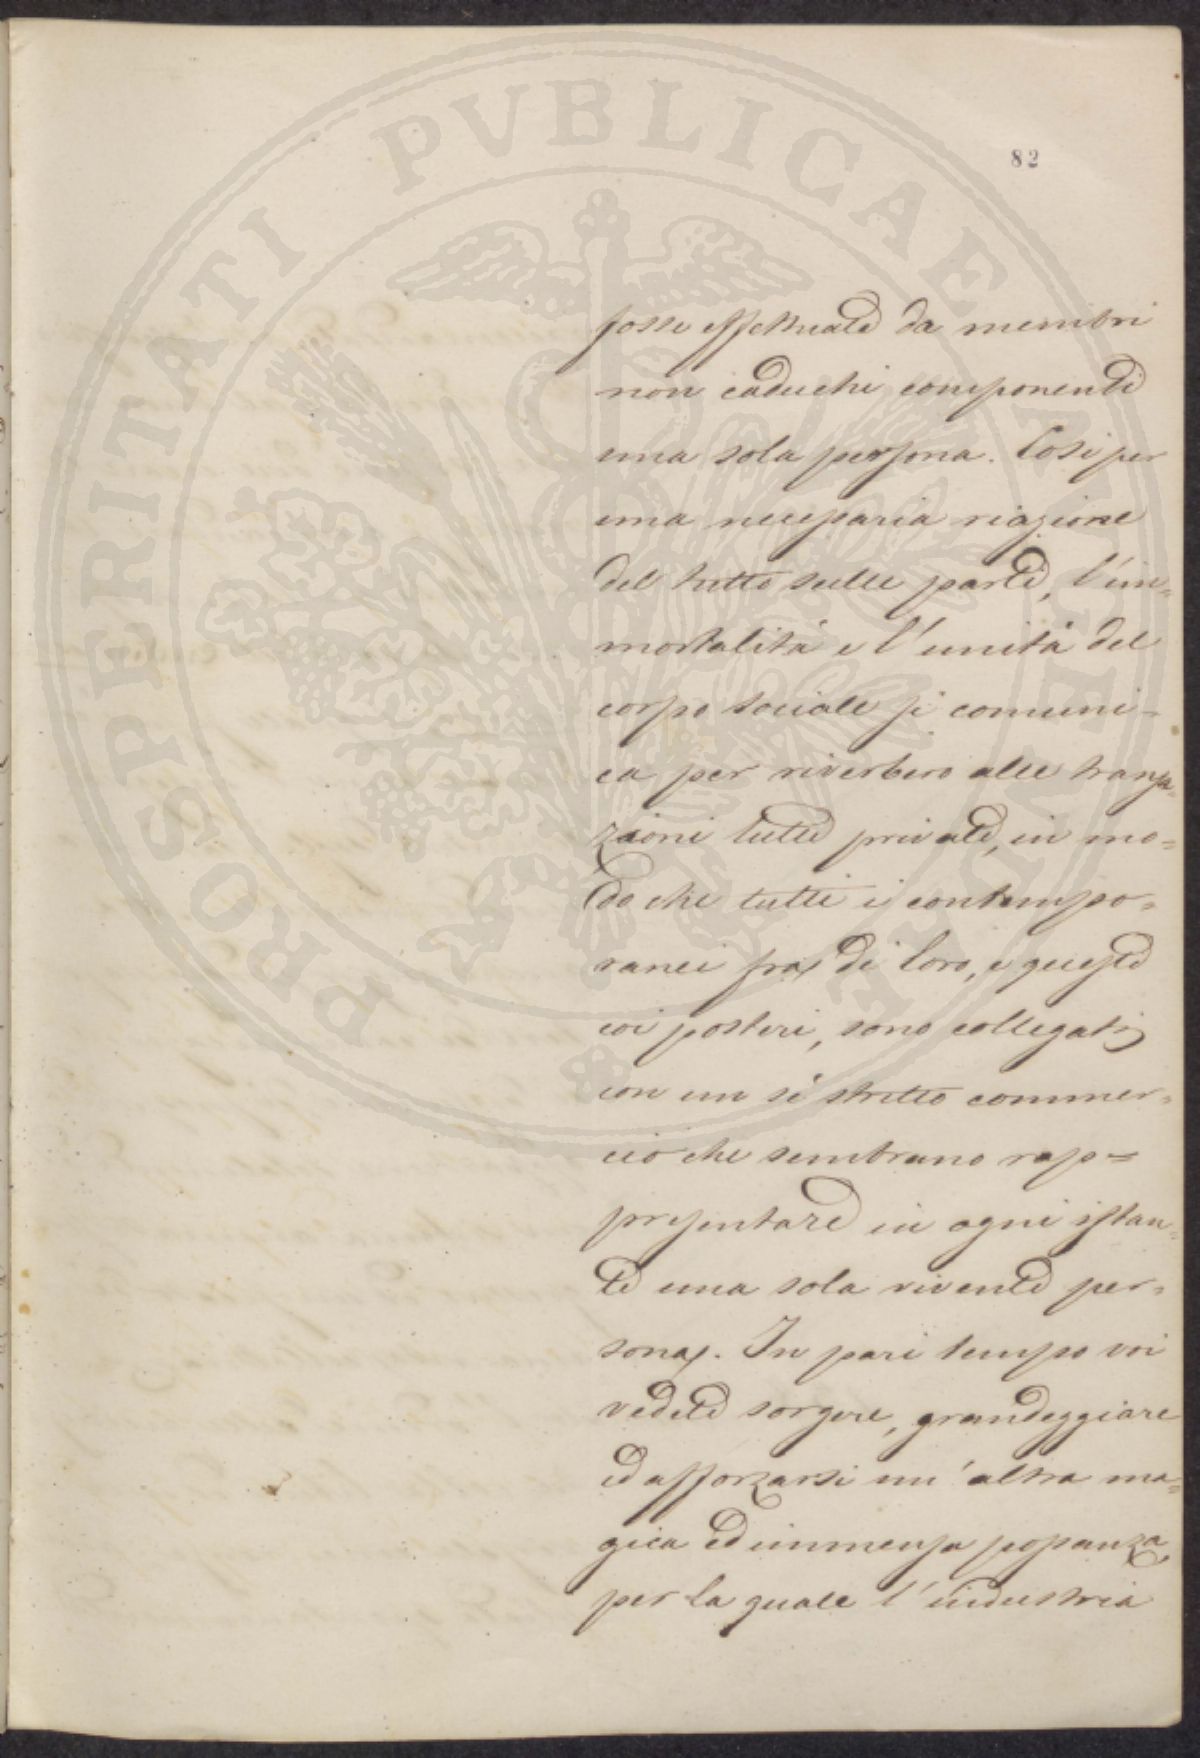 82
fosse effettuata da membri
non caduchi componenti
una sola persona. Così per
una necessaria riazione
del tutto sulle parti, l'im=
mortalità e l'unità del
corpo sociale si comuni=
ca per riverbero alle transa=
zioni tutte private, in mo=
do che tutti i contempo=
ranei fra di loro, e questi
coi posteri, sono collegati
con un sì stretto commer=
cio che sembrano rap=
presentare in ogni istan=
te una sola vivente per=
sona. In pari tempo voi
vedete sorgere, grandeggiare
ed afforzarsi un'altra ma=
gica ed immensa possanza,
per la quale l'industria
PROSPERITATI PVBLICAE AVGENDAE